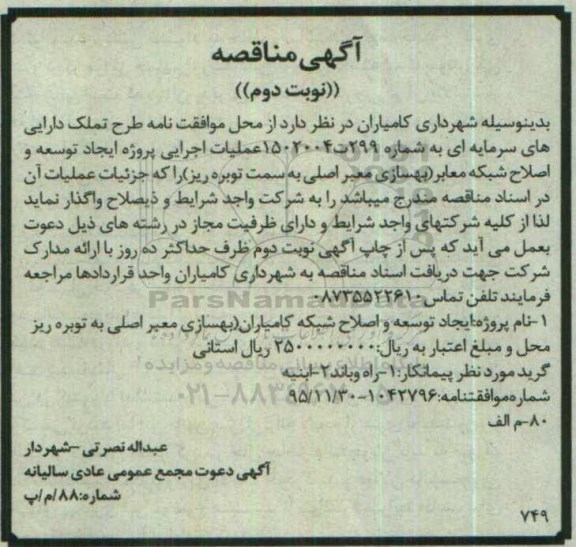 آگهی مناقصه
((نوبت دوم))
بدینوسیله شهرداری کامیاران در نظر دارد از محل موافقت نامه طرح تملک دارایی
های سرمایه ای به شماره ۲۹۹ت۱۵۰۲۰۰۴عملیات اجرایی پروژه ایجاد توسعه و
اصلاح شبکه معابر(بهسازی معبر اصلی به سمت توبره ریز)را که جزئیات عملیات آن
در اسناد مناقصه مندرج میباشد را به شرکت واجد شرایط و ذیصلاح واگذار نماید
لذا از کلیه شرکتهای واجد شرایط و دارای ظرفیت مجاز در رشته های ذیل دعوت
بعمل می آید که پس از چاپ آگهی نوبت دوم ظرف حداکثر ده روز با ارائه مدارک
شرکت جهت دریافت اسناد مناقصه به شهرداری کامیاران واحد قراردادها مراجعه
فرمایند تلفن تماس ۰۸۷۳۵۵۲۲۶۱
۱-نام پروژه:ایجاد توسعه و اصلاح شبکه کامیاران(بهسازی معبر اصلی به توبره ریز
محل و مبلغ اعتبار به ریال:۲۵۰۰۰۰۰۰۰۰۰ ریال استانی
گرید مورد نظر پیمانکار:۱-راه وباند۲-ابنیه
شماره موافقتنامه:۱۰۴۲۷۹۶-۹۵/۱۱/۳۰
۸۰-م الف
عبداله نصرتی -شهردار
آگهی دعوت مجمع عمومی عادی سالیانه
شماره:۸۸/م/پ
۷۴۹
ParsNamadData
۰۲۱-۸۸۳۴۹۶۷۰